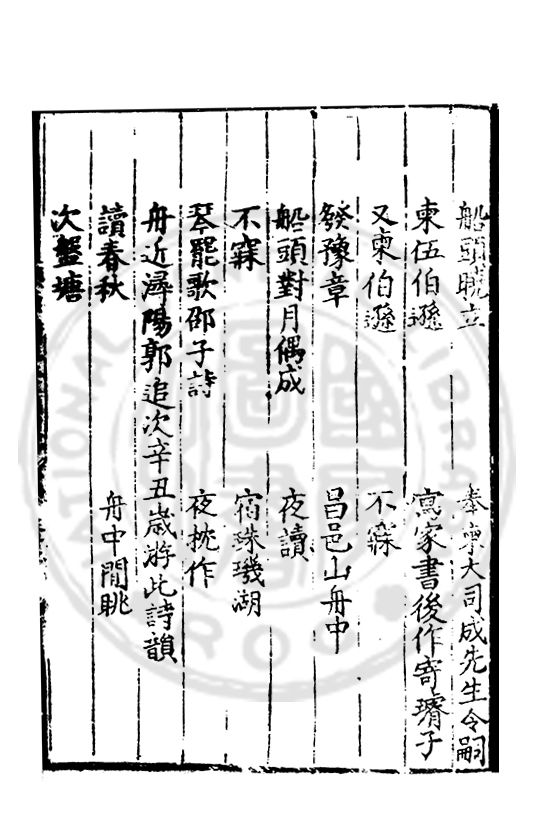 船頭晚立 奉柬大司成先生令嗣
柬伍伯遜 寫家書後作寄璿子
又柬伯遜 不寐
發豫章 呂邑山舟中
船頭對月偶成 夜讀
不寐 宿珠璣湖
琴罷歌邵子詩 夜枕作
舟近潯陽郭追次辛丑歲游此詩韻
讀春秋 舟中閒眺
次盤塘